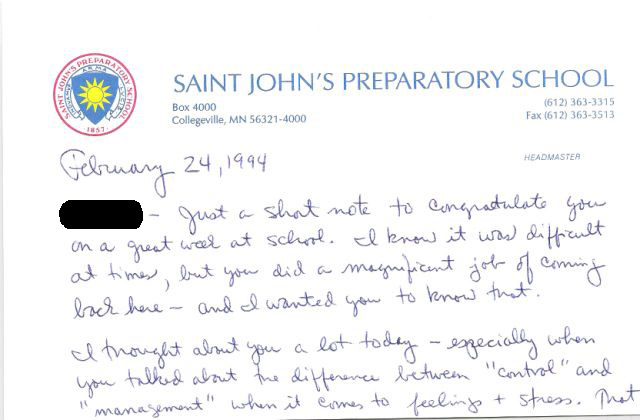 SAINT JOHN'S PREPARATORY SCHOOL
1857
SAINT JOHN'S PREPARATORY SCHOOL
Box 4000
Collegeville, MN 56321-4000
(612) 363-3315
Fax (612) 363-3513
HEADMASTER
February 24, 1994
- Just a short note to congratulate you
on a great week at school. I know it was difficult
at times, but you did a magnificent job of coming
back here - and I wanted you to know that.
I thought about you a lot today - especially when
you talked about the difference between "control" and
"management" when it comes to feelings + stress. That